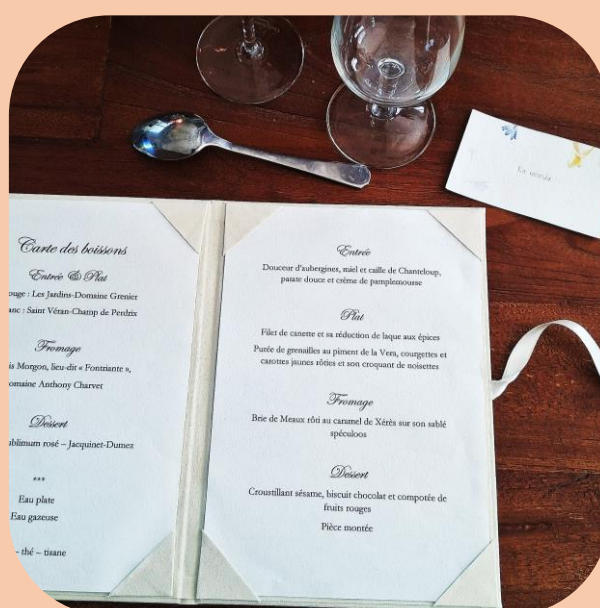 Carte des boissons
Entrée & Plat
ouge : Les Jardins-Domaine Grenier
anc : Saint Véran-Champ de Perdrix
Fromage
is Morgon, lieu-dit « Fontriante »,
omaine Anthony Charvet
Dessert
ublimum rosé – Jacquinet-Dumez
***
Eau plate
Eau gazeuse
- thé – tisane
Entrée
Douceur d'aubergines, miel et caille de Chanteloup,
patate douce et crème de pamplemousse
Plat
Filet de canette et sa réduction de laque aux épices
Purée de grenailles au piment de la Vera, courgettes et
carottes jaunes rôties et son croquant de noisettes
Fromage
Brie de Meaux rôti au caramel de Xérès sur son sablé
spéculoos
Dessert
Croustillant sésame, biscuit chocolat et compotée de
fruits rouges
Pièce montée